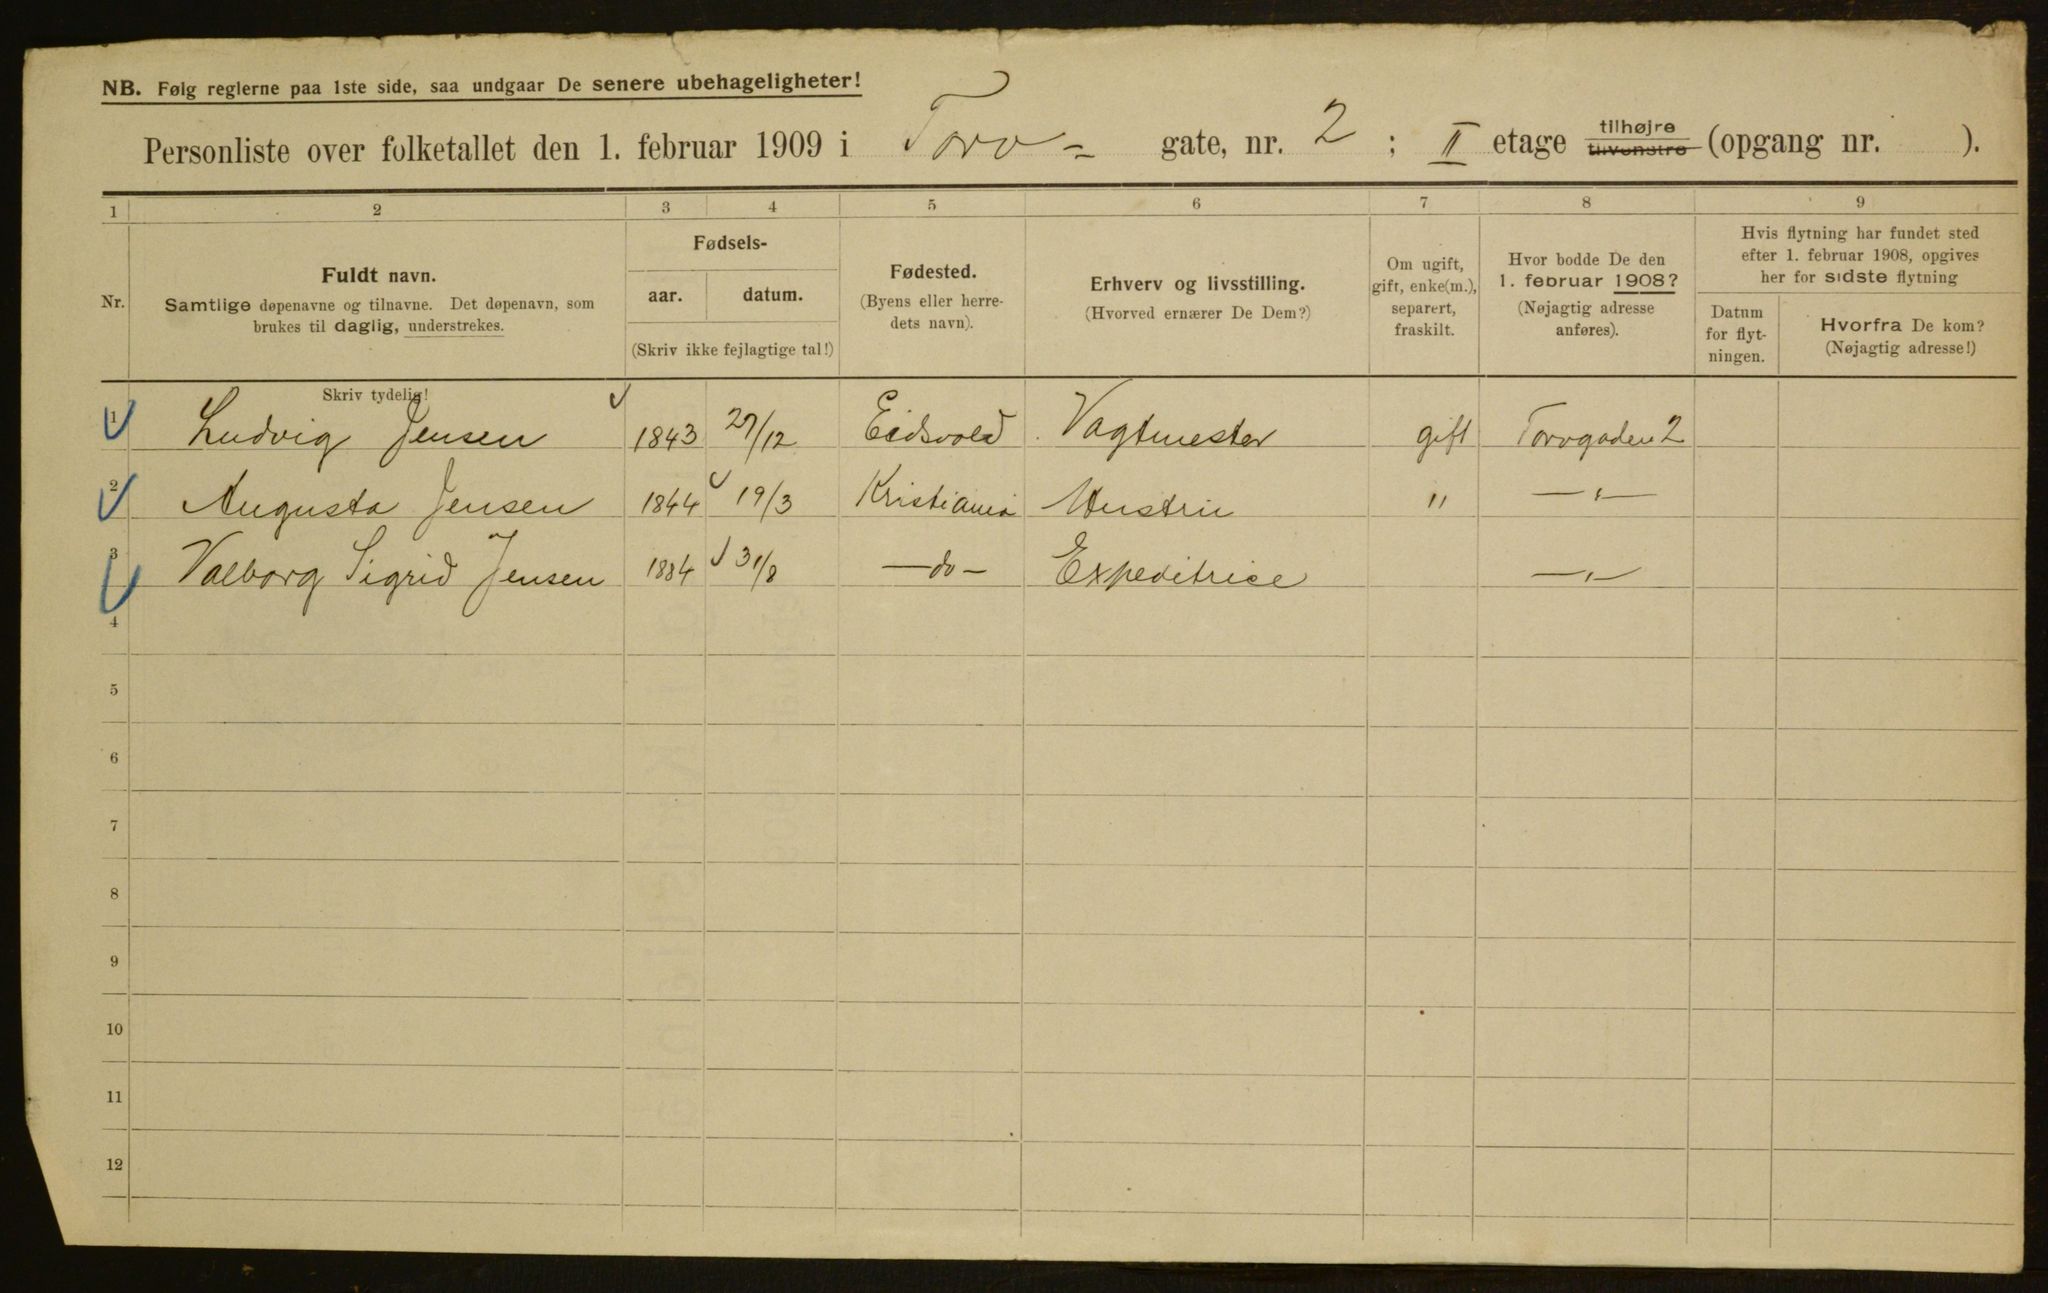 NB. Følg reglerne paa 1ste side, saa undgaar De senere ubehageligheter!
Personliste over folketallet den 1. februar 1909 i Torv- gate, nr. 2 ; II etage tilhøjre tilvenstre (opgang nr. ).
1 2 3 4 5 6 7 8 9
Nr.
Fuldt navn.
Samtlige døpenavne og tilnavne. Det døpenavn, som
brukes til daglig, understrekes.
Skriv tydelig!
Fødsels-
aar. datum.
(Skriv ikke fejlagtige tal!)
Fødested.
(Byens eller herre-
dets navn).
Erhverv og livsstilling.
(Hvorved ernærer De Dem?)
Om ugift,
gift, enke(m.),
separert,
fraskilt.
Hvor bodde De den
1. februar 1908?
(Nøjagtig adresse
anføres).
Hvis flytning har fundet sted
efter 1. februar 1908, opgives
her for sidste flytning
Datum
for flyt-
ningen.
Hvorfra De kom?
(Nøjagtig adresse!)
1 Ludvig Jensen 1843 27/12 Eidsvold Vagtmester gift Torvgaden 2
2 Augusta Jensen 1844 19/3 Kristiania Hustru " —"—
3 Valborg Sigrid Jensen 1884 31/8 —do— Expeditrice —"—
4
5
6
7
8
9
10
11
12